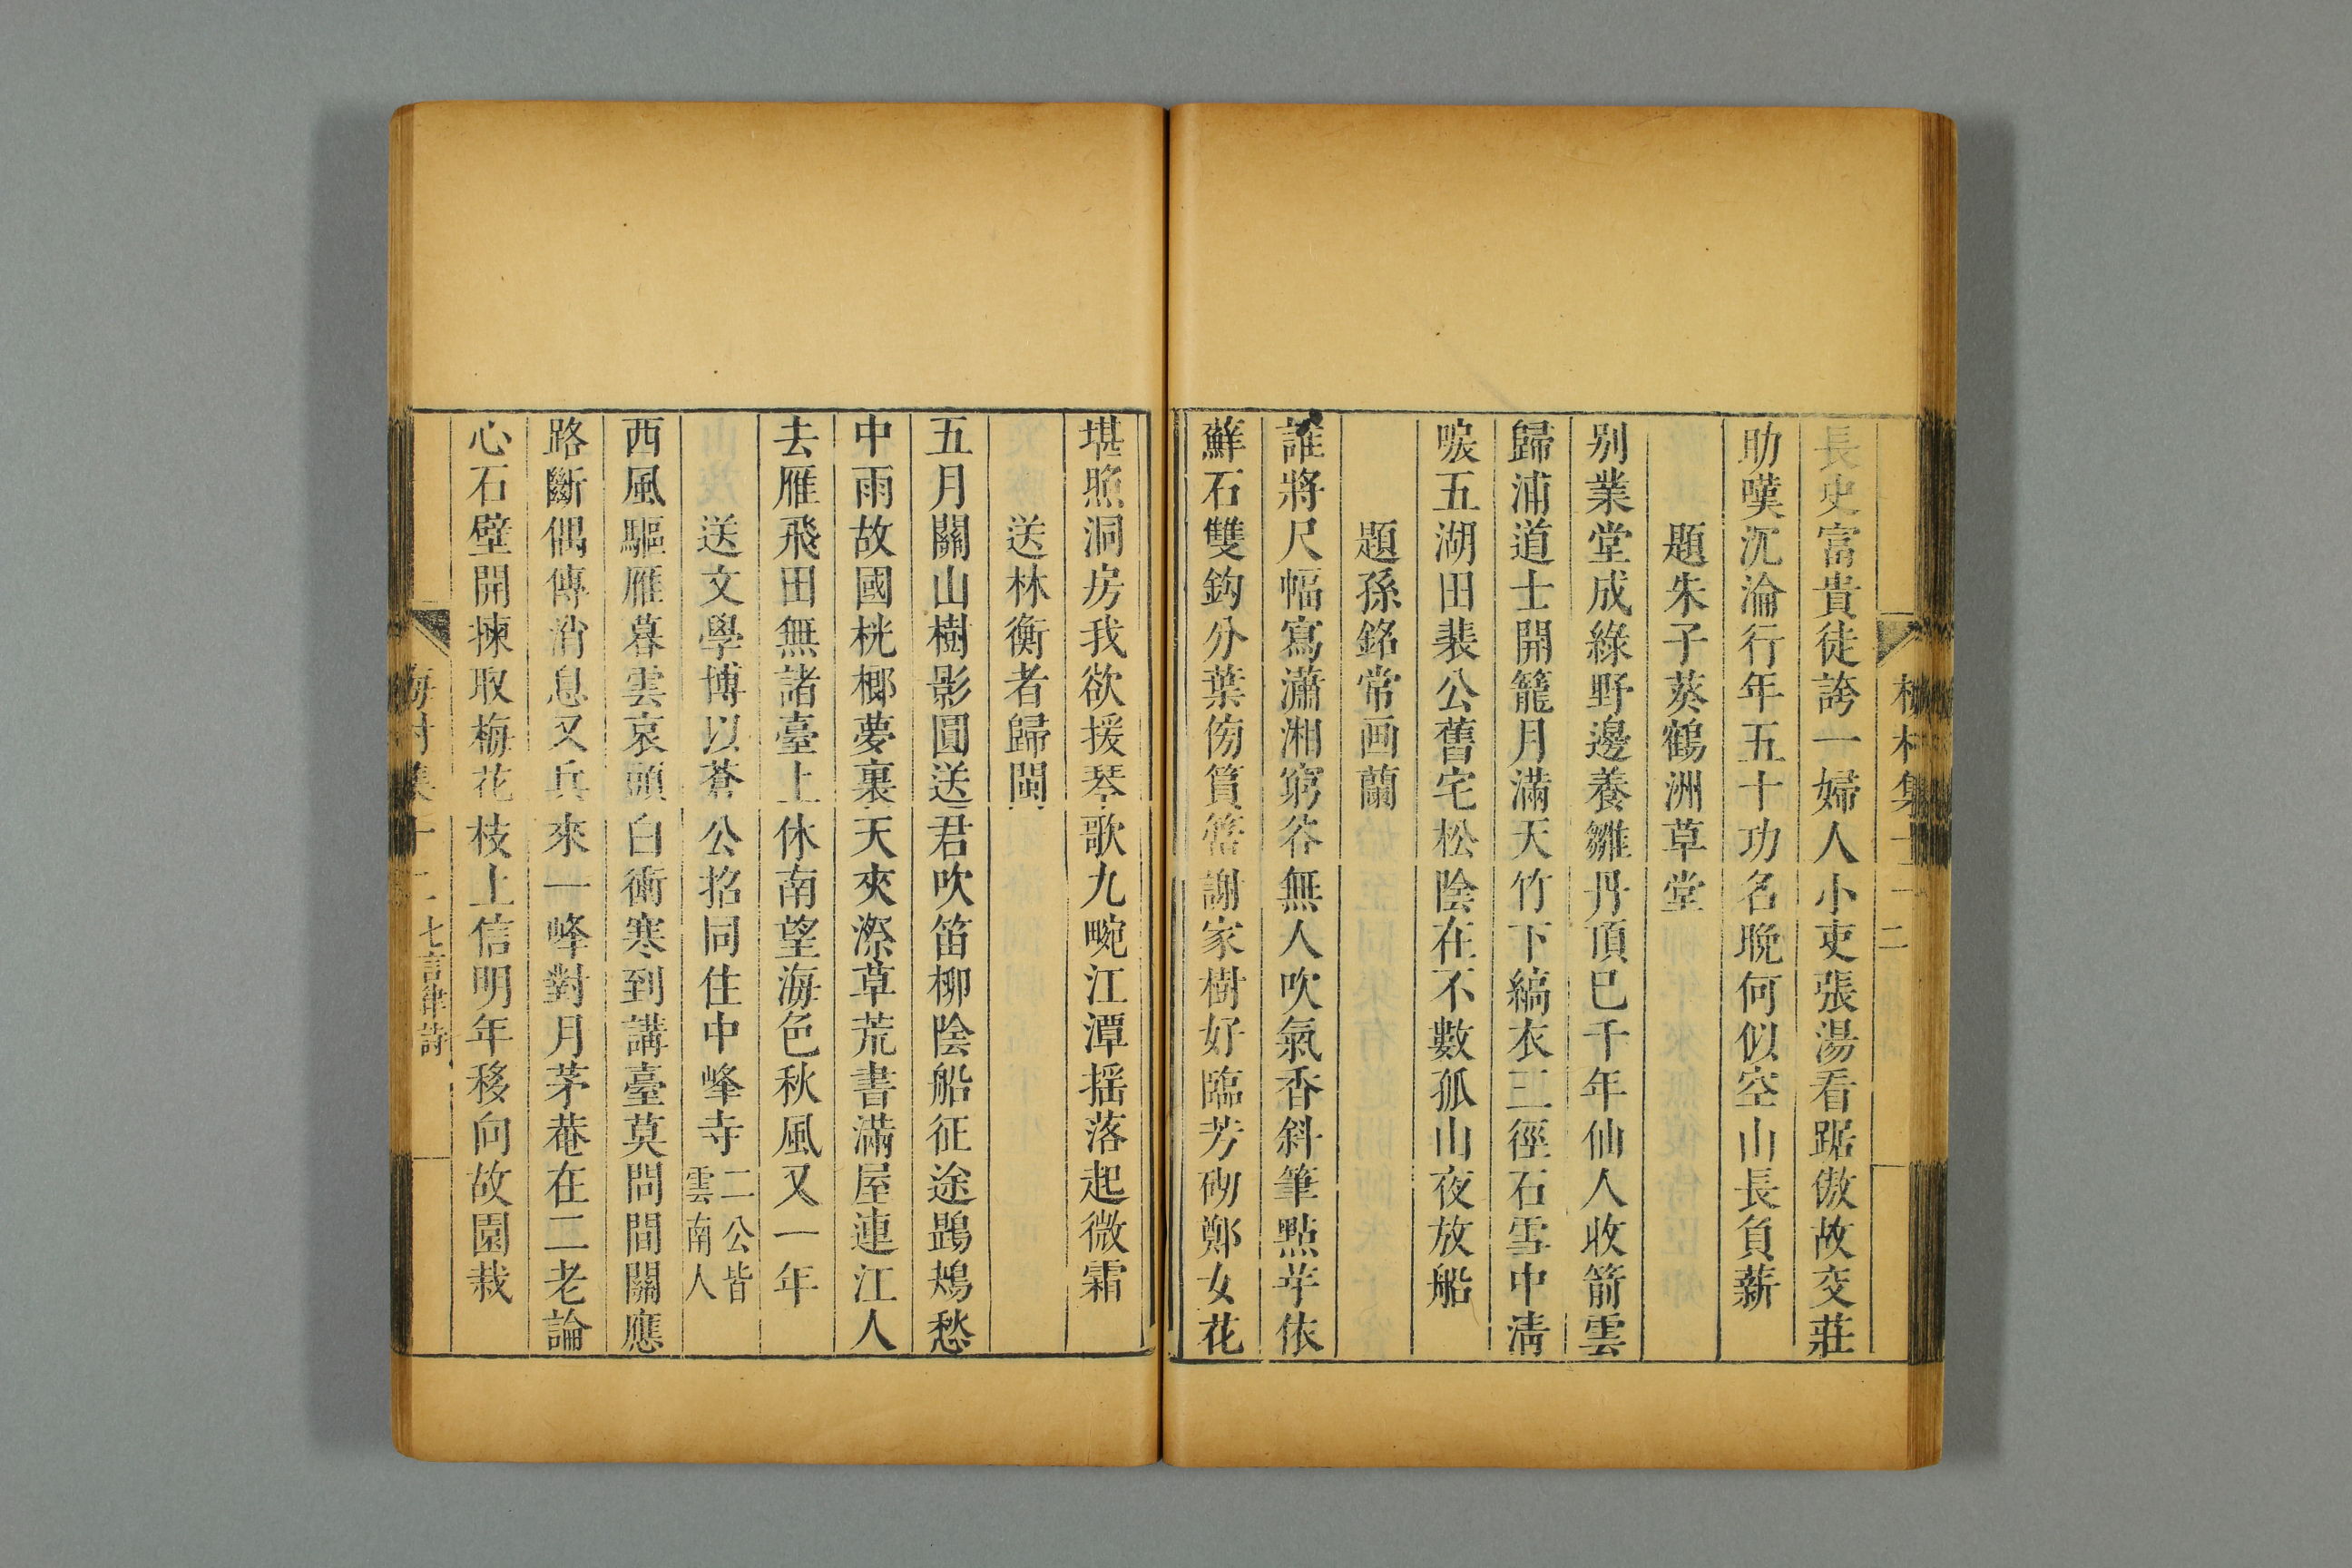 梅村集十二
長史富貴徒誇一婦人小吏張湯看踞傲故交莊
助嘆沉淪行年五十功名晚何似空山長負薪
題朱子葵鶴洲草堂
別業堂成綠野邊養雛丹頂巳千年仙人收箭雲
歸浦道士開籠月滿天竹下縞衣三徑石雪中清
唳五湖田裴公舊宅松陰在不數孤山夜放船
題孫銘常画蘭
誰將尺幅寫瀟湘窮谷無人吹氣香斜筆點芽依
蘚石雙鈎分葉傍篔簹謝家樹好臨芳砌鄭女花
堪照洞房我欲援琴歌九畹江潭揺落起微霜
送林衡者歸閩
五月關山樹影圓送君吹笛柳陰船征途鵾鴂愁
中雨故國桄榔夢裏天夾漈草荒書滿屋連江人
去雁飛田無諸臺上休南望海色秋風又一年
送文學博以蒼公招同住中峰寺二公皆雲南人
西風驅雁暮雲哀頭白衝寒到講臺莫問間關應
路斷偶傳消息又兵來一峰對月茅菴在二老論
心石壁開揀取梅花枝上信明年移向故園栽
梅村集十二 七言律詩